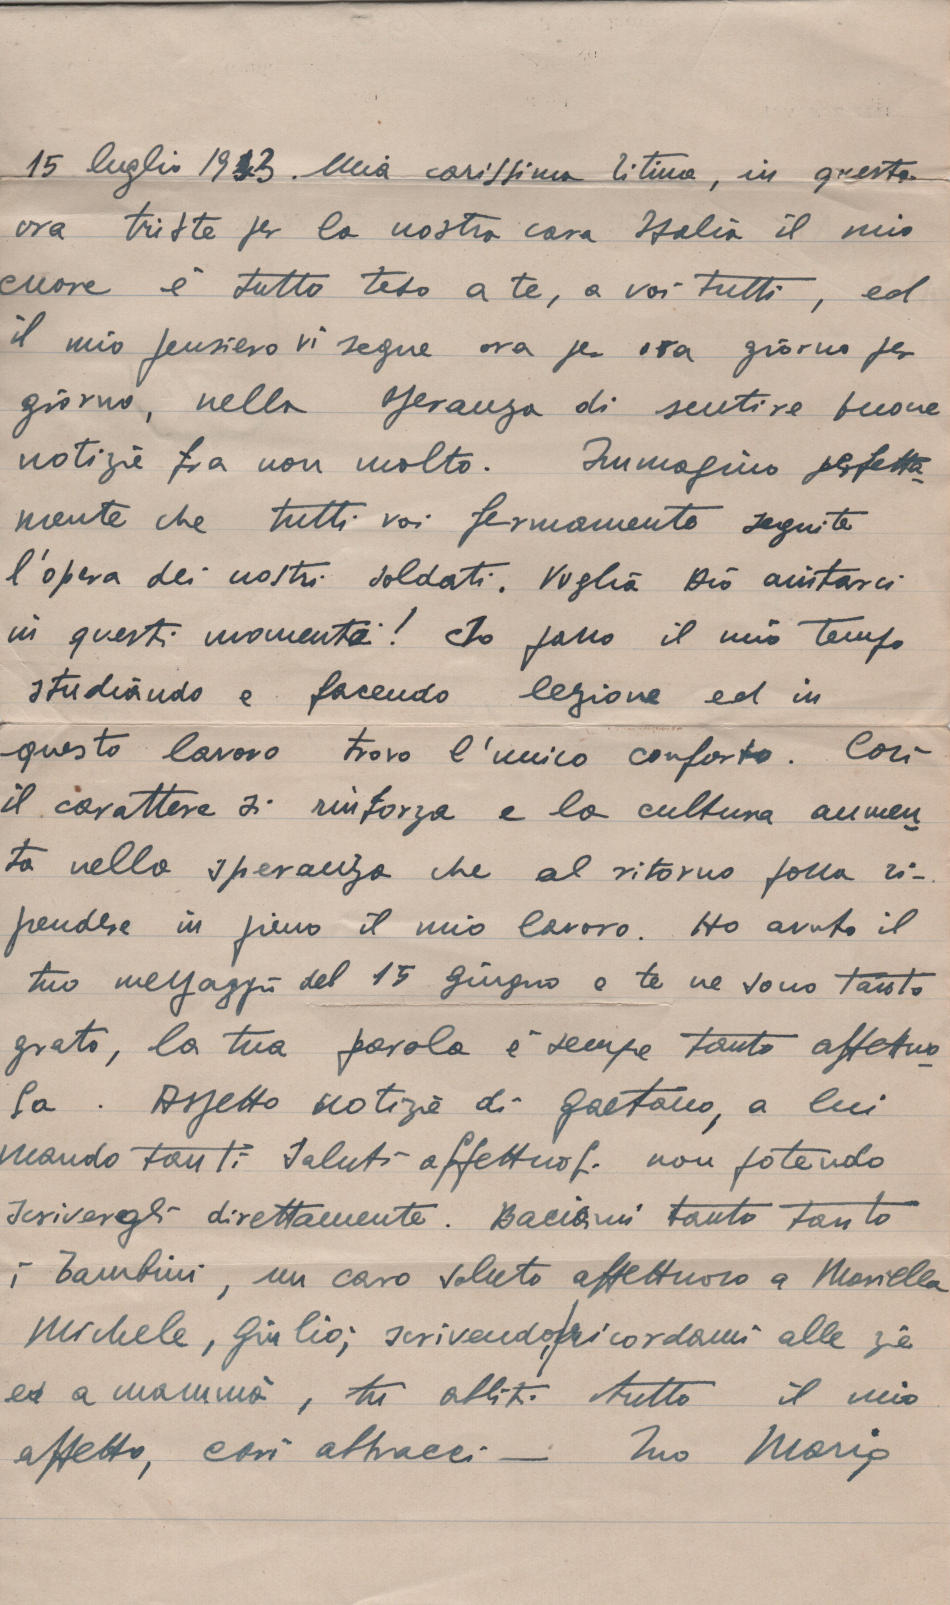 15 luglio 1943. Mia carissima Titina, in questa
ora triste per la nostra cara Italia il mio
cuore è tutto teso a te, a voi tutti, ed
il mio pensiero vi segue ora per ora giorno per
giorno, nella speranza di sentire buone
notizie fra non molto. Immagino perfetta-
mente che tutti voi fermamente seguite
l'opera dei nostri soldati. Voglia Dio aiutarci
in questi momenti! Io passo il mio tempo
studiando e facendo lezione ed in
questo lavoro trovo l'unico conforto. Così
il carattere si rinforza e la cultura aumen-
ta nella speranza che al ritorno possa ri-
prendere in pieno il mio lavoro. Ho avuto il
tuo messaggio del 15 giugno e te ne sono tanto
grato, la tua parola è sempre tanto affettuo-
sa. Aspetto notizie di Gaetano, a lui
mando tanti saluti affettuosi non potendo
scrivergli direttamente. Baciami tanto tanto
i bambini, un caro saluto affettuoso a Mariella
Michele, Giulio; scrivendo, ricordami alle zie
ed a mammà, tu abbiti tutto il mio
affetto, cari abbracci — Tuo Mario